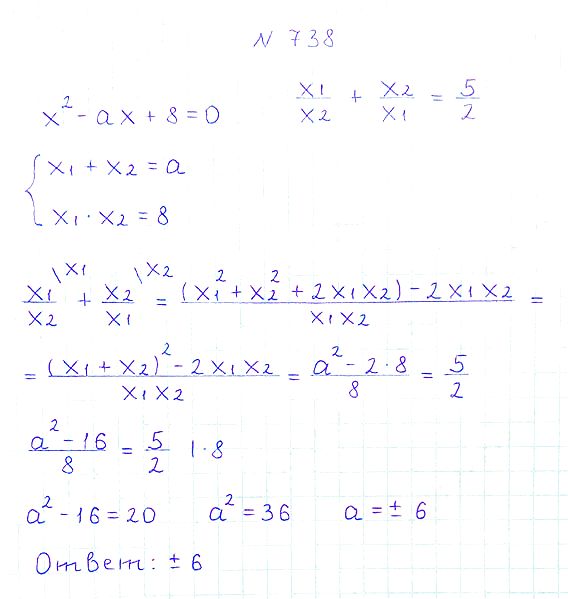 N 738
x² - ax + 8 = 0    x1/x2 + x2/x1 = 5/2
{ x1 + x2 = a
x1 · x2 = 8
x1/x2 \x1 + x2/x1 \x2 = ((x1² + x2² + 2x1x2) - 2x1x2)/(x1x2) =
= ((x1 + x2)² - 2x1x2)/(x1x2) = (a² - 2·8)/8 = 5/2
(a² - 16)/8 = 5/2 | · 8
a² - 16 = 20    a² = 36    a = ± 6
Ответ: ± 6